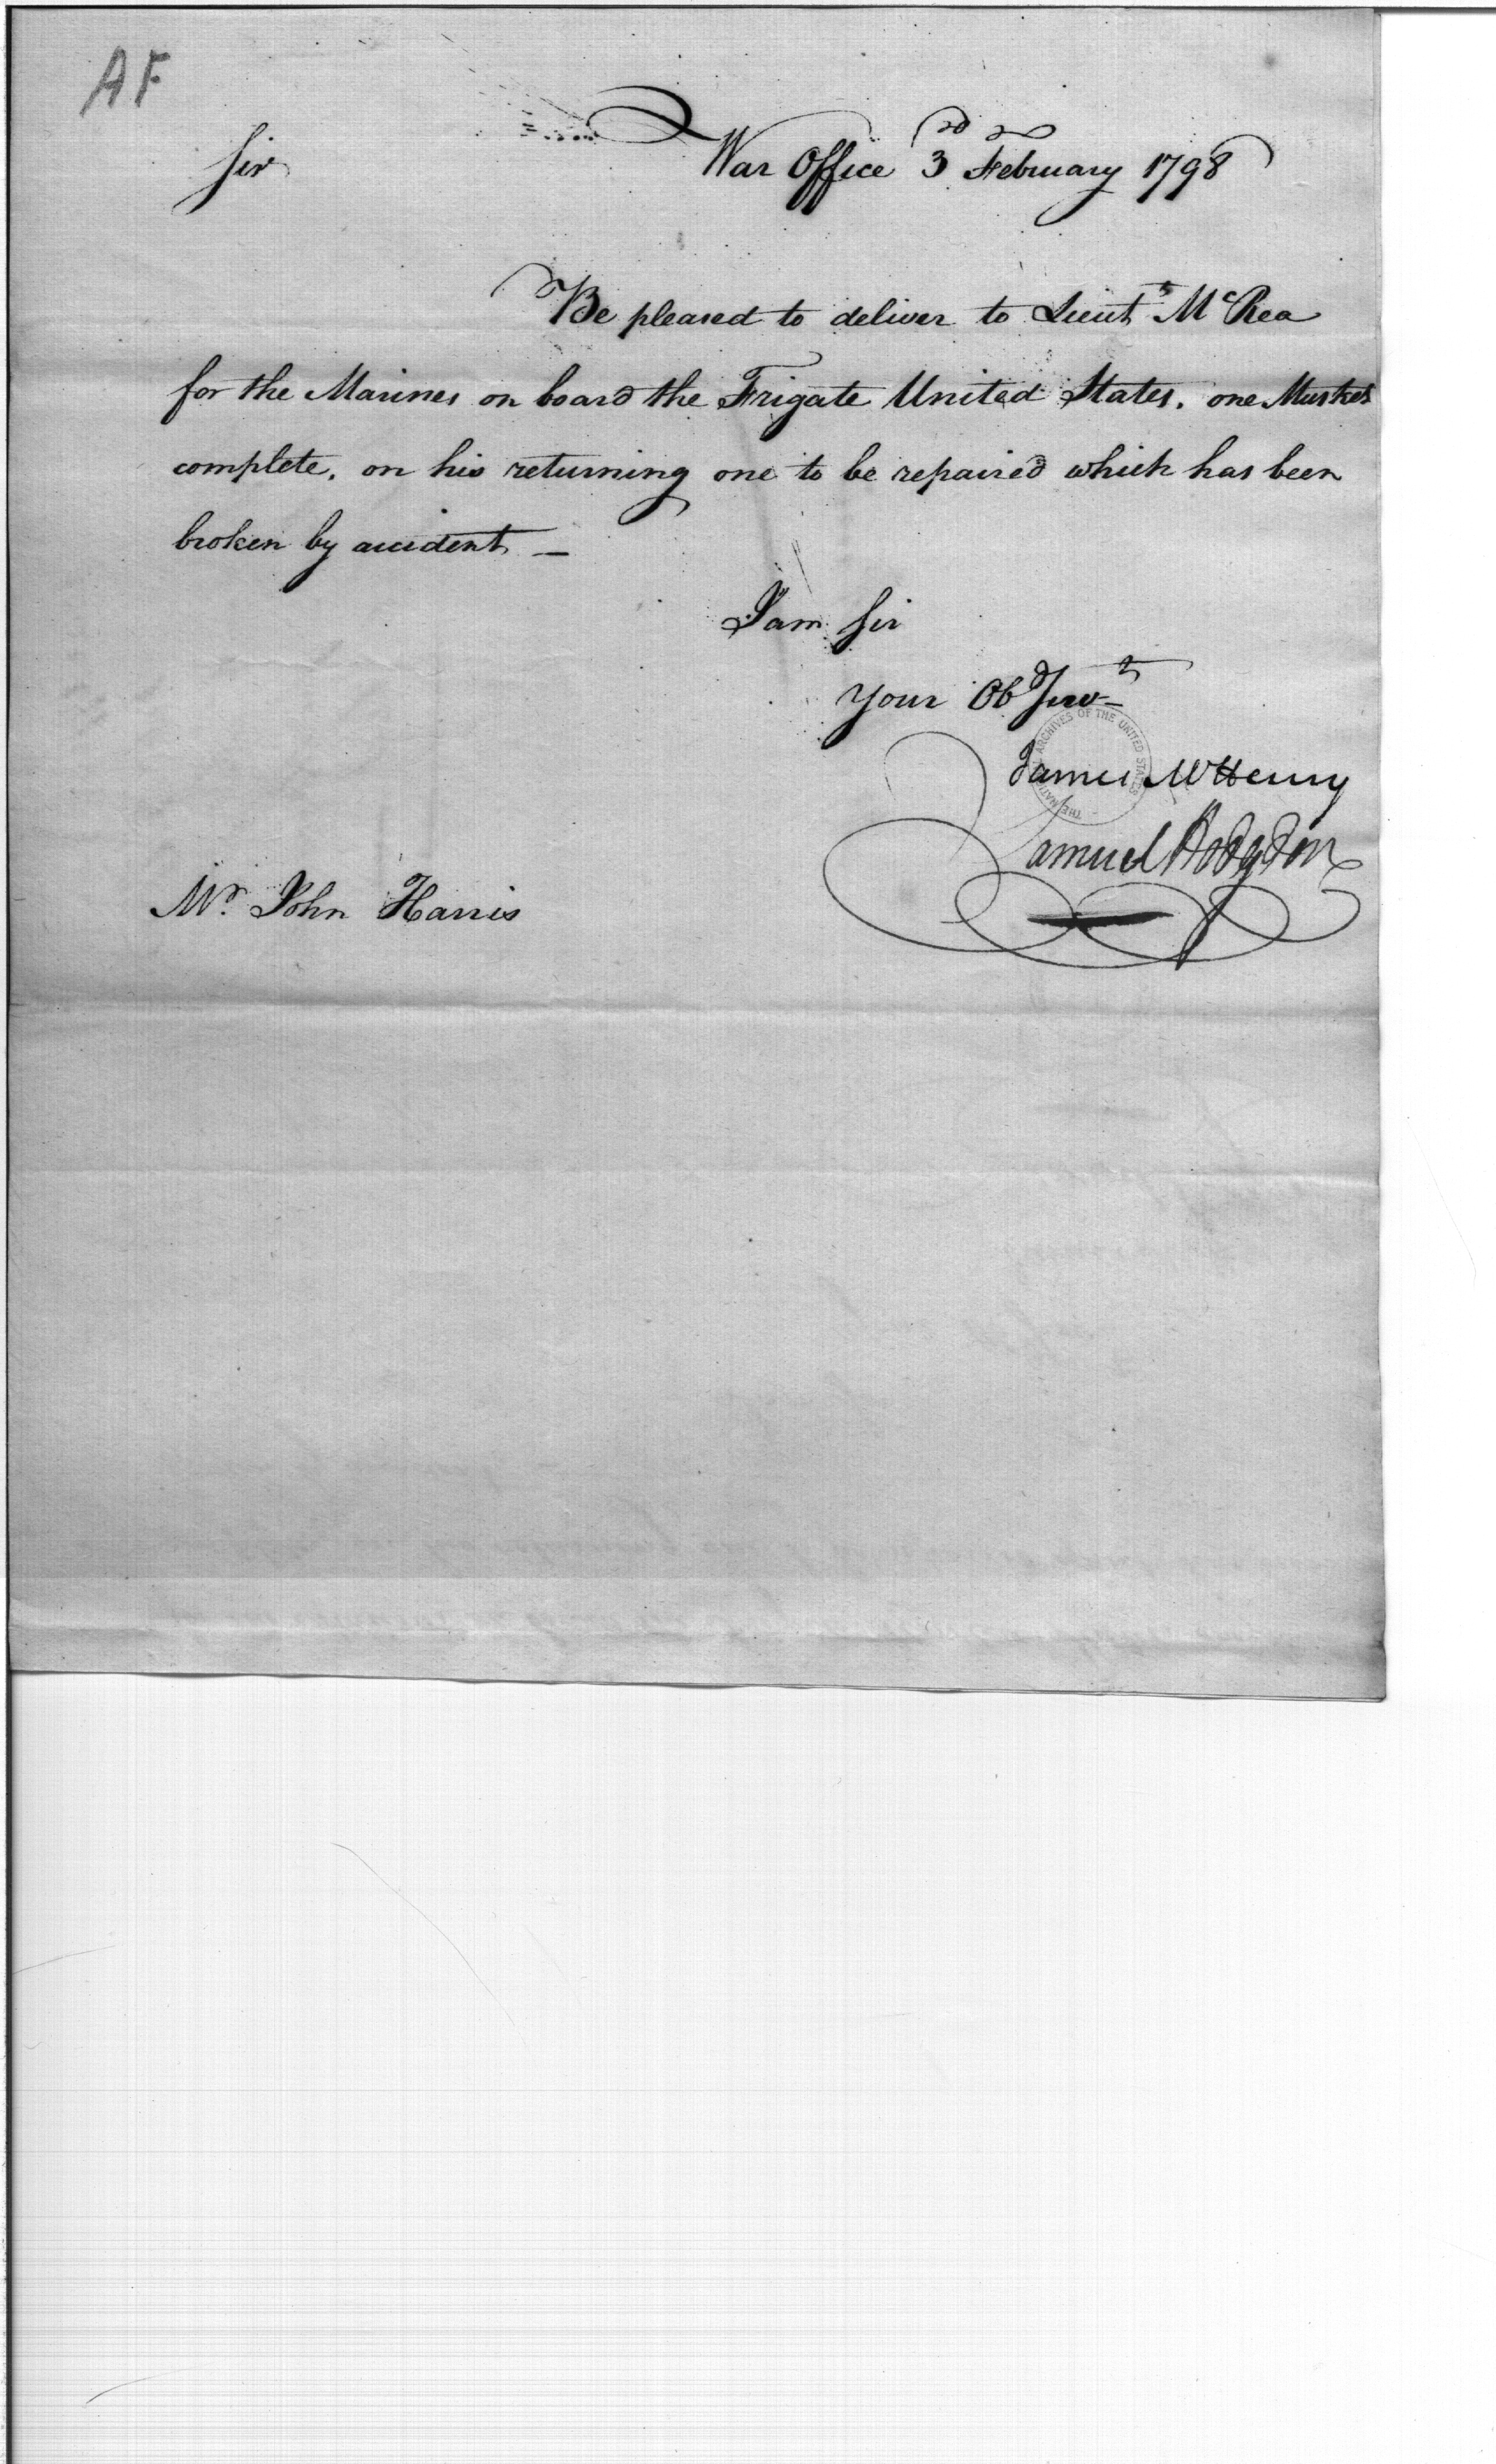 AF
Sir
War Office 3rd February 1798
Be pleased to deliver to Lieut McRea
for the Marines on board the Frigate United States. one Musket
complete. on his returning one to be repaired which has been
broken by accident —
I am Sir
Your Ob Servt
THE NATIONAL ARCHIVES OF THE UNITED STATES
James McHenry
Samuel Hodgdon
Mr. John Harris